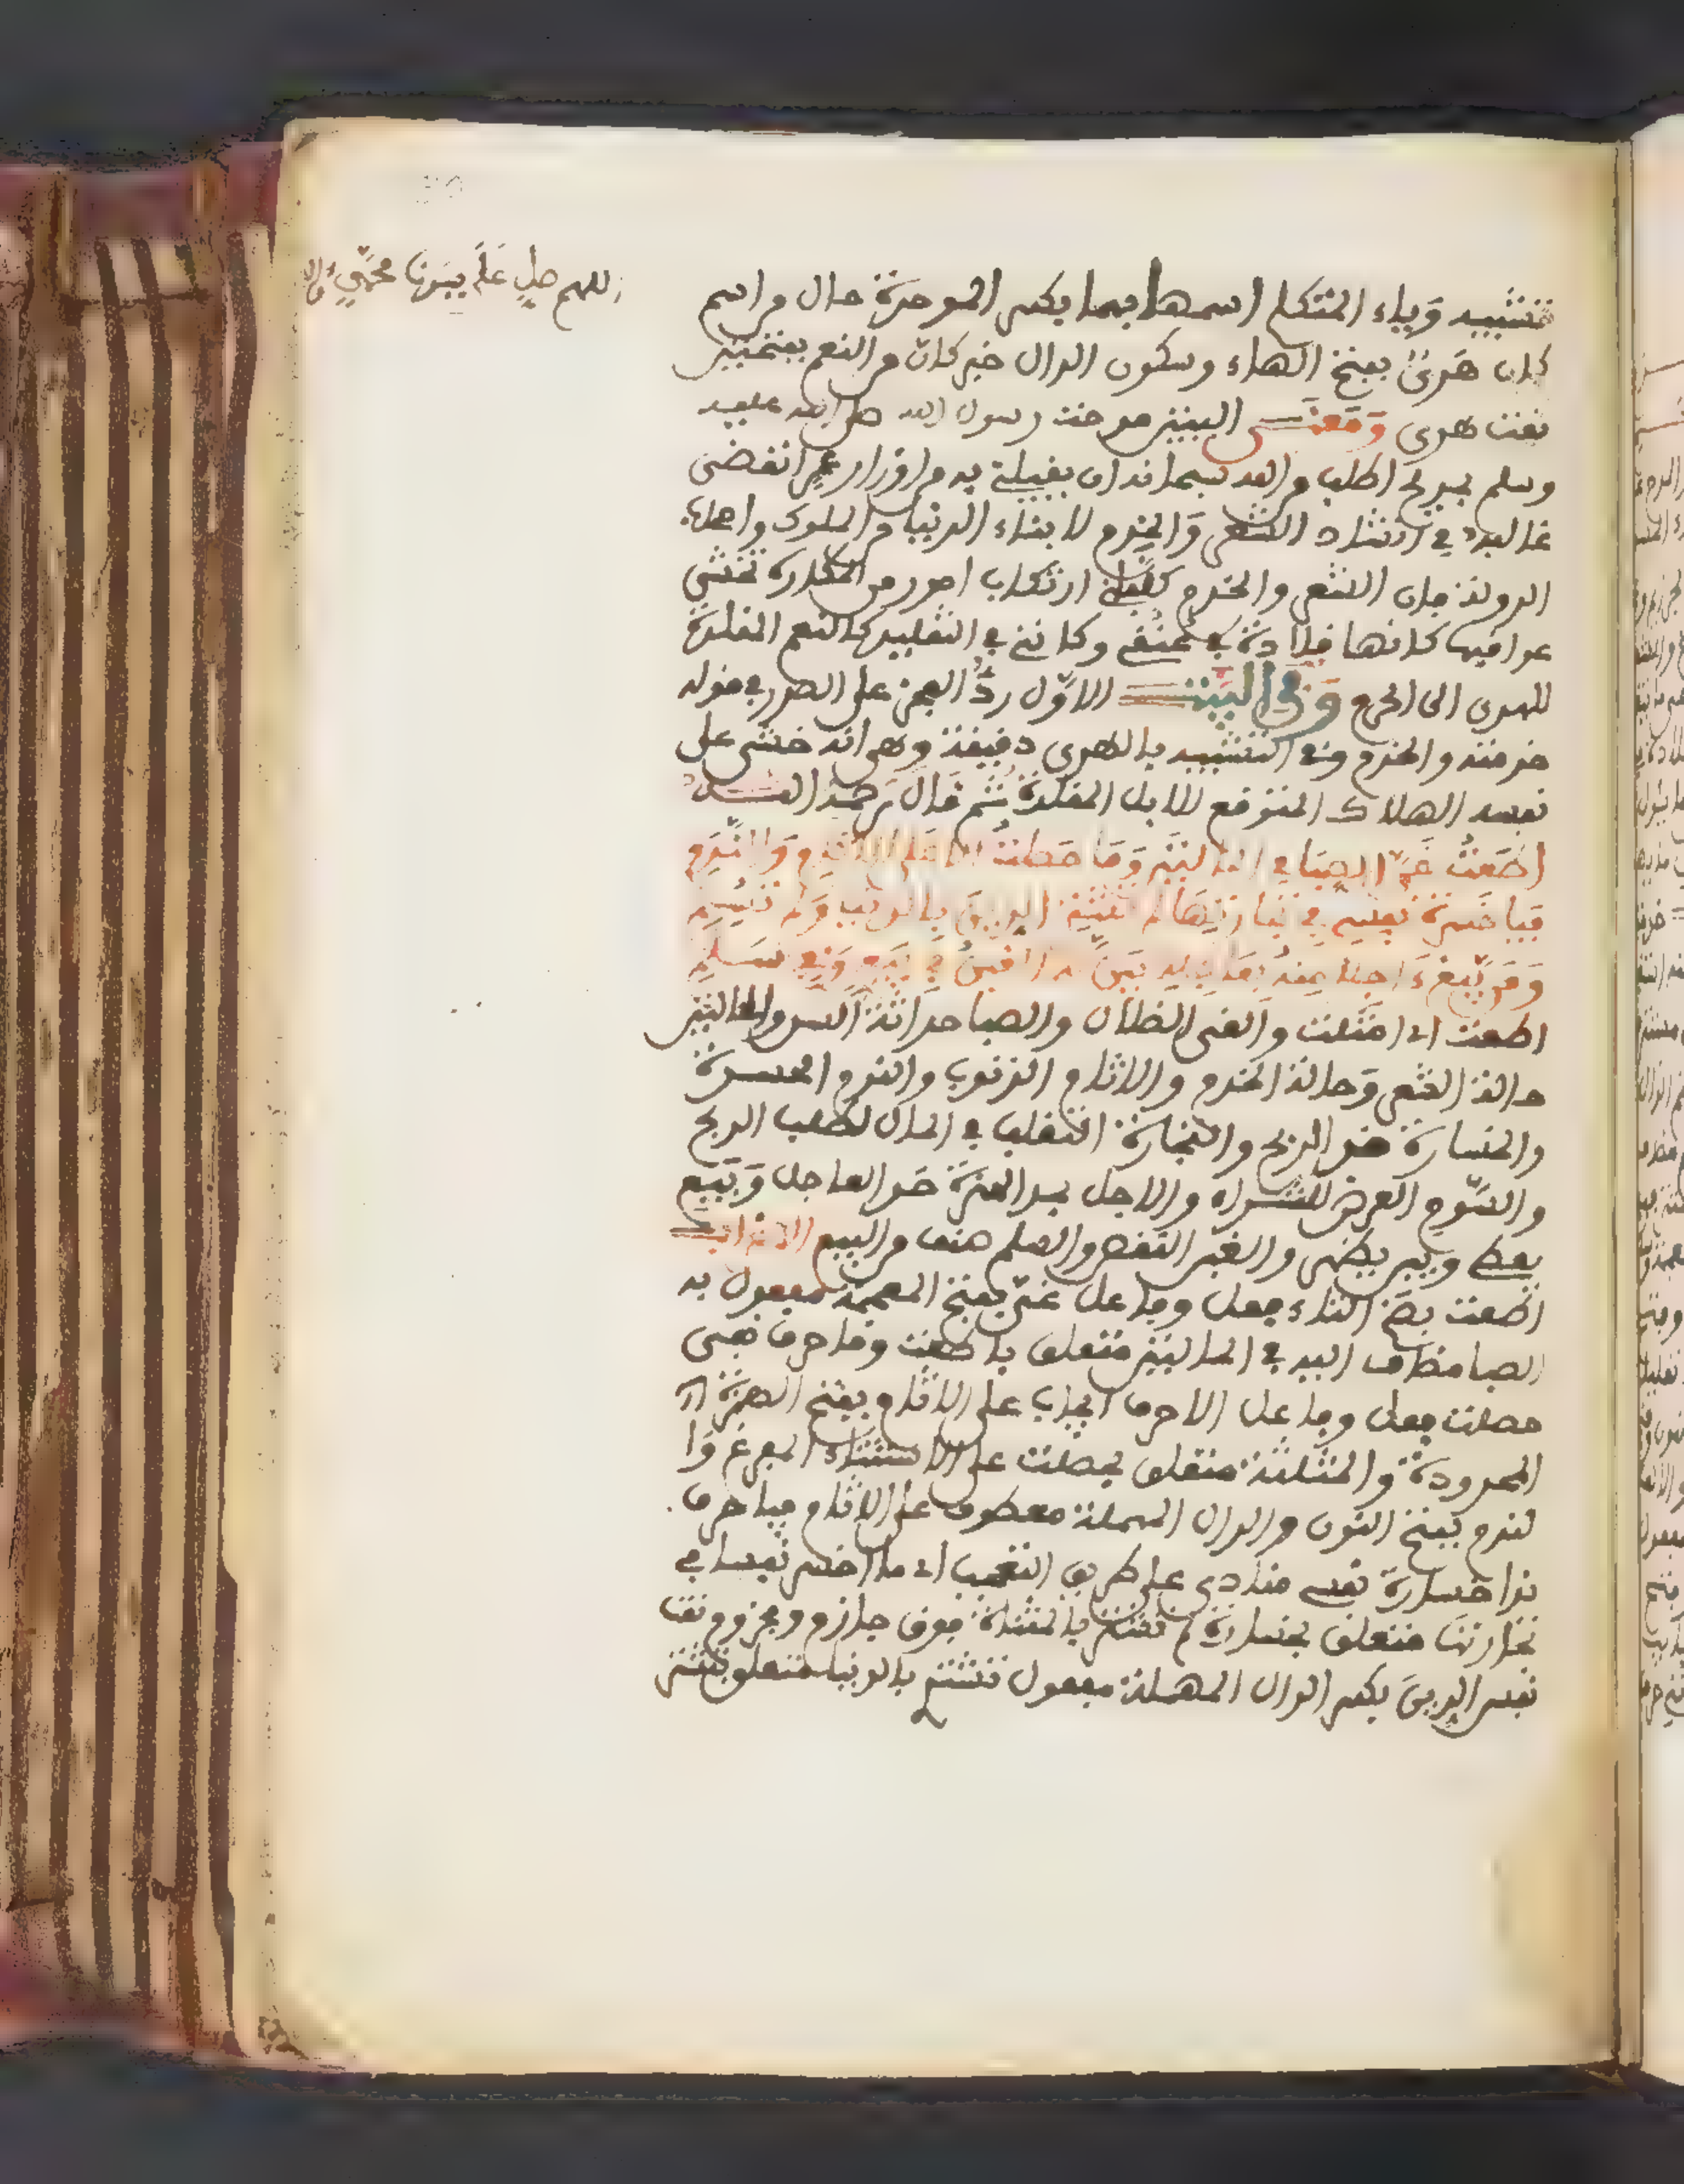 اللهم صل على سيدنا محمد وءاله
تشبيه وياء المتكلم اسمها بهما بكسر الموحدة حال من اسم
كان هدي بفتح الهاء وسكون الدال خبر كان من النعم بفتحتين
نعت هدي ومعنى البيتين مدحت رسول الله صلى الله عليه
وسلم بمديح اطلب من الله سبحانه ان يقيلني به من اوزار عمر انقضى
غالبه في انشاد الشعر والخدم لابناء الدنيا من الملوك واهل
الدولة فان الشعر والخدم كلفاني ارتكاب امور من المكاره تخشى
عواقبها كانها قلادة في عنقي وكانني في التقليد كالنعم المقلدة
للهدي الى الحرم وفي البيتين الاول رد العجز على الصدر في قوله
خدمته والخدم وفي التشبيه بالهدي دقيقة وهي انه خشي على
نفسه الهلاك المتوقع للابل المقلدة ثم قال رحمه الله
اطعت غي الصبا في الحالتين وما حصلت الا على الاثام والندم
فيا خسارة نفس في تجارتها لم تشتر الدين بالدنيا ولم تسم
ومن يبع ءاجلا منه بعاجله يبن له الغبن في بيع وفي سلم
اطعت اي امتثلت والغي الضلال والصبا حداثة السن والحالتين
حالة الشعر وحالة الخدم والاثام الذنوب والندم الحسرة
والخسارة ضد الربح والتجارة التقلب في المال لطلب الربح
والسوم العرض للشراء والاجل بمد الهمزة ضد العاجل ويبع
يعط ويبن يظهر والغبن النقص والسلم صنف من البيع الاعراب
اطعت بضم التاء فعل وفاعل غي بفتح المعجمة مفعول به
الصبا مضاف اليه في الحالتين متعلق باطعت وما حرف نفي
حصلت فعل وفاعل الا حرف ايجاب على الاثام بفتح الهمزة
الممدودة والمثلثة متعلق بحصلت على الاستثناء المفرغ وا
لندم بفتح النون والدال المهملة معطوف على الاثام فيا حرف
ندا خسارة نفس منادى على طريق التعجب اي ما اخسر نفسا في
تجارتها متعلق بخسارة لم تشتر بالمثناة فوق جازم ومجزوم نعت
نفس الدين بكسر الدال المهملة مفعول تشتر بالدنيا متعلق بتشتر